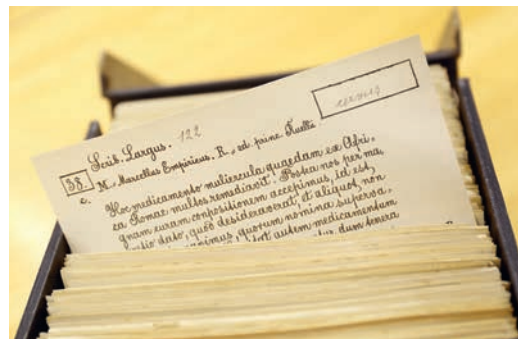 Scrib. Largus. 122
cervus
38.
c. M. = Marcellus Empiricus. R. = ed. princ. Ruellii
Hoc medicamento muliercula quaedam ex Afri-
ca Romae multos remediavit. Postea nos per ma-
gnam curam compositionem accepimus, id est,
pretio dato, quod desideraverat, et aliquot non
quorum nomina superva-
autem medicamentum
dum tenera